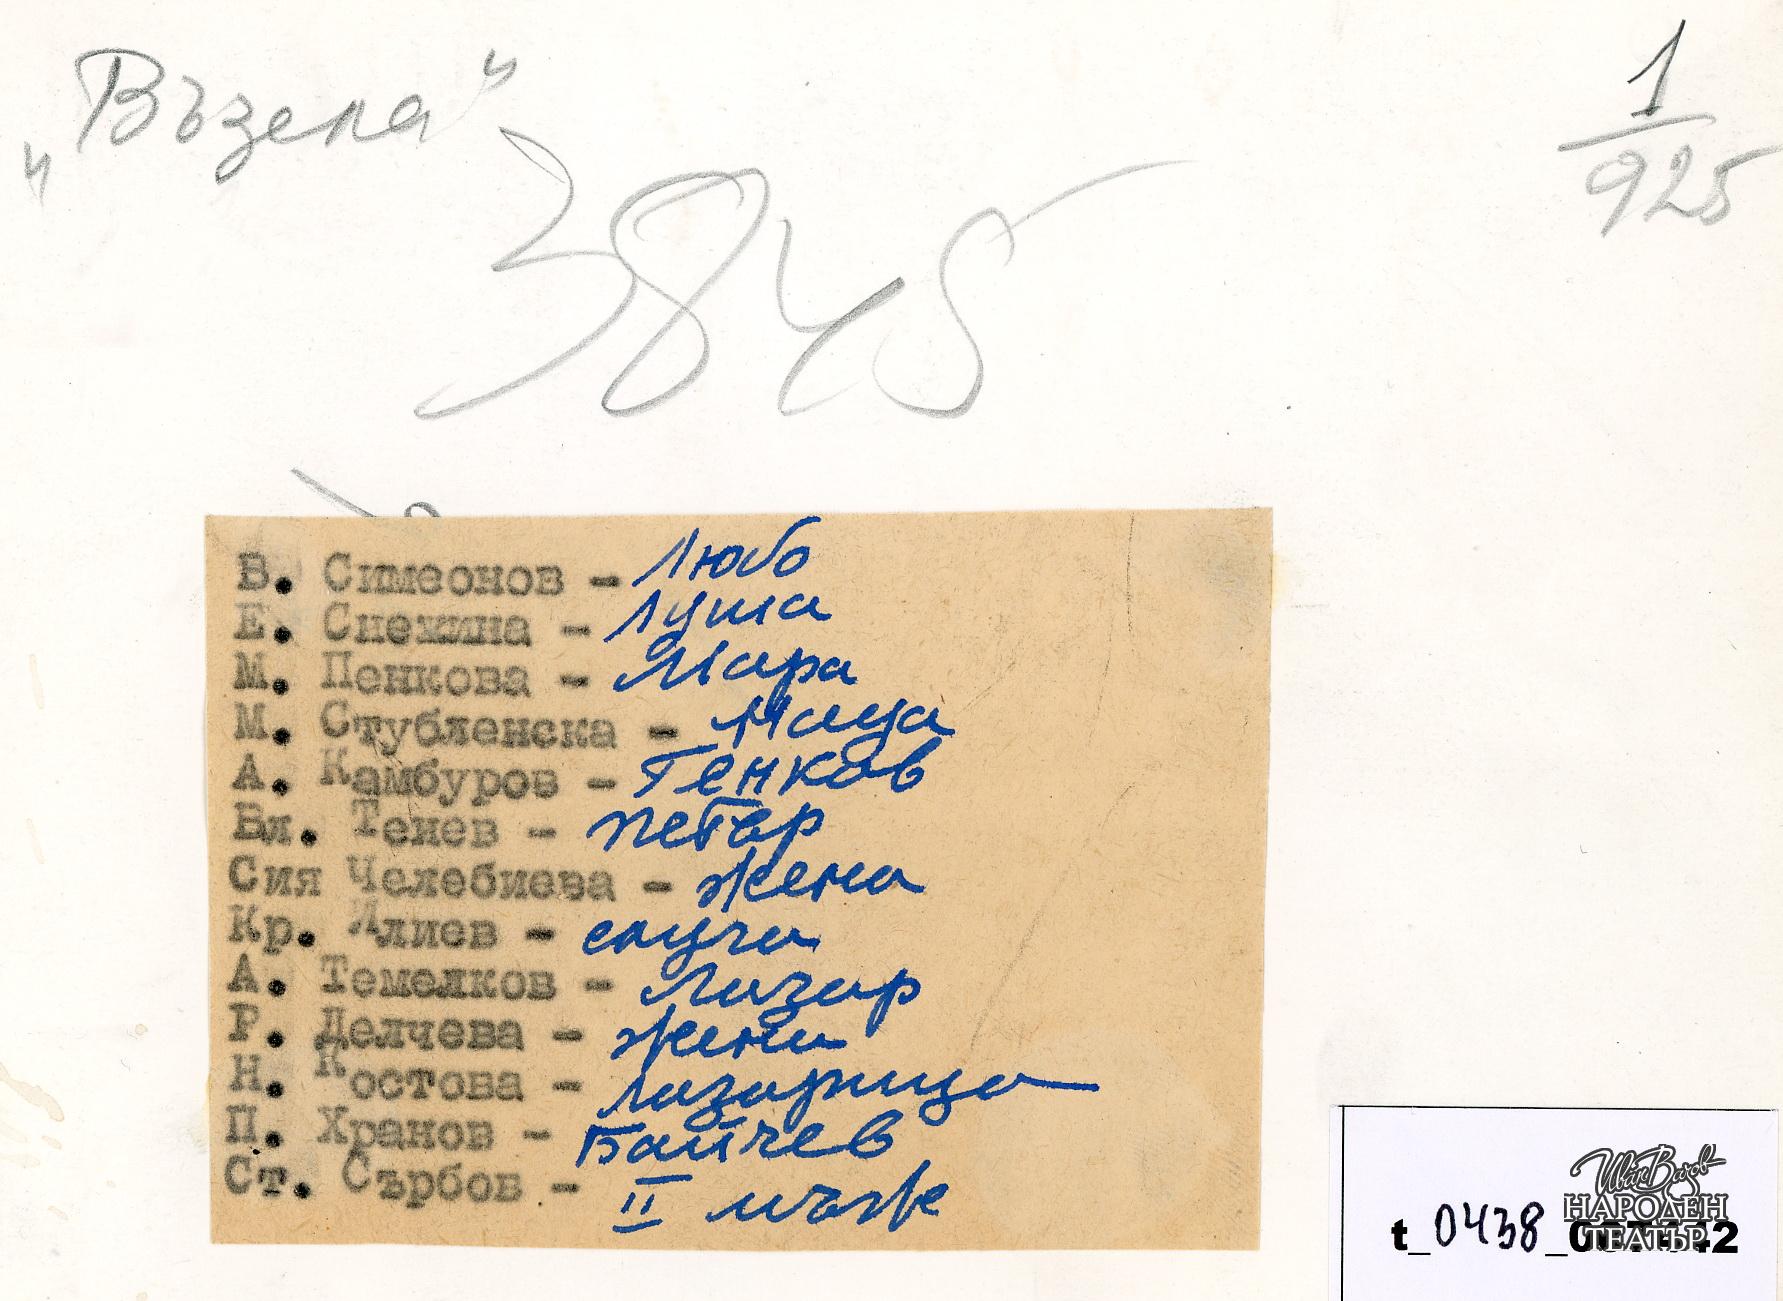 „Възела"
1
925
3845
В. Симеонов - Любо
Е. Снежина - Луша
М. Пенкова - Мара
М. Стубленска - Маца
А. Камбуров - Генков
Вл. Тенев - Петър
Сия Челебиева - жена
Кр. Илиев - слуга
А. Темелков - Лазар
Р. Делчева - жена
Н. Костова - Лазарица
П. Хранов - Байчев
Ст. Сърбов - II мъж
Иван Вазов
НАРОДЕН
ТЕАТЪР
t_0438_